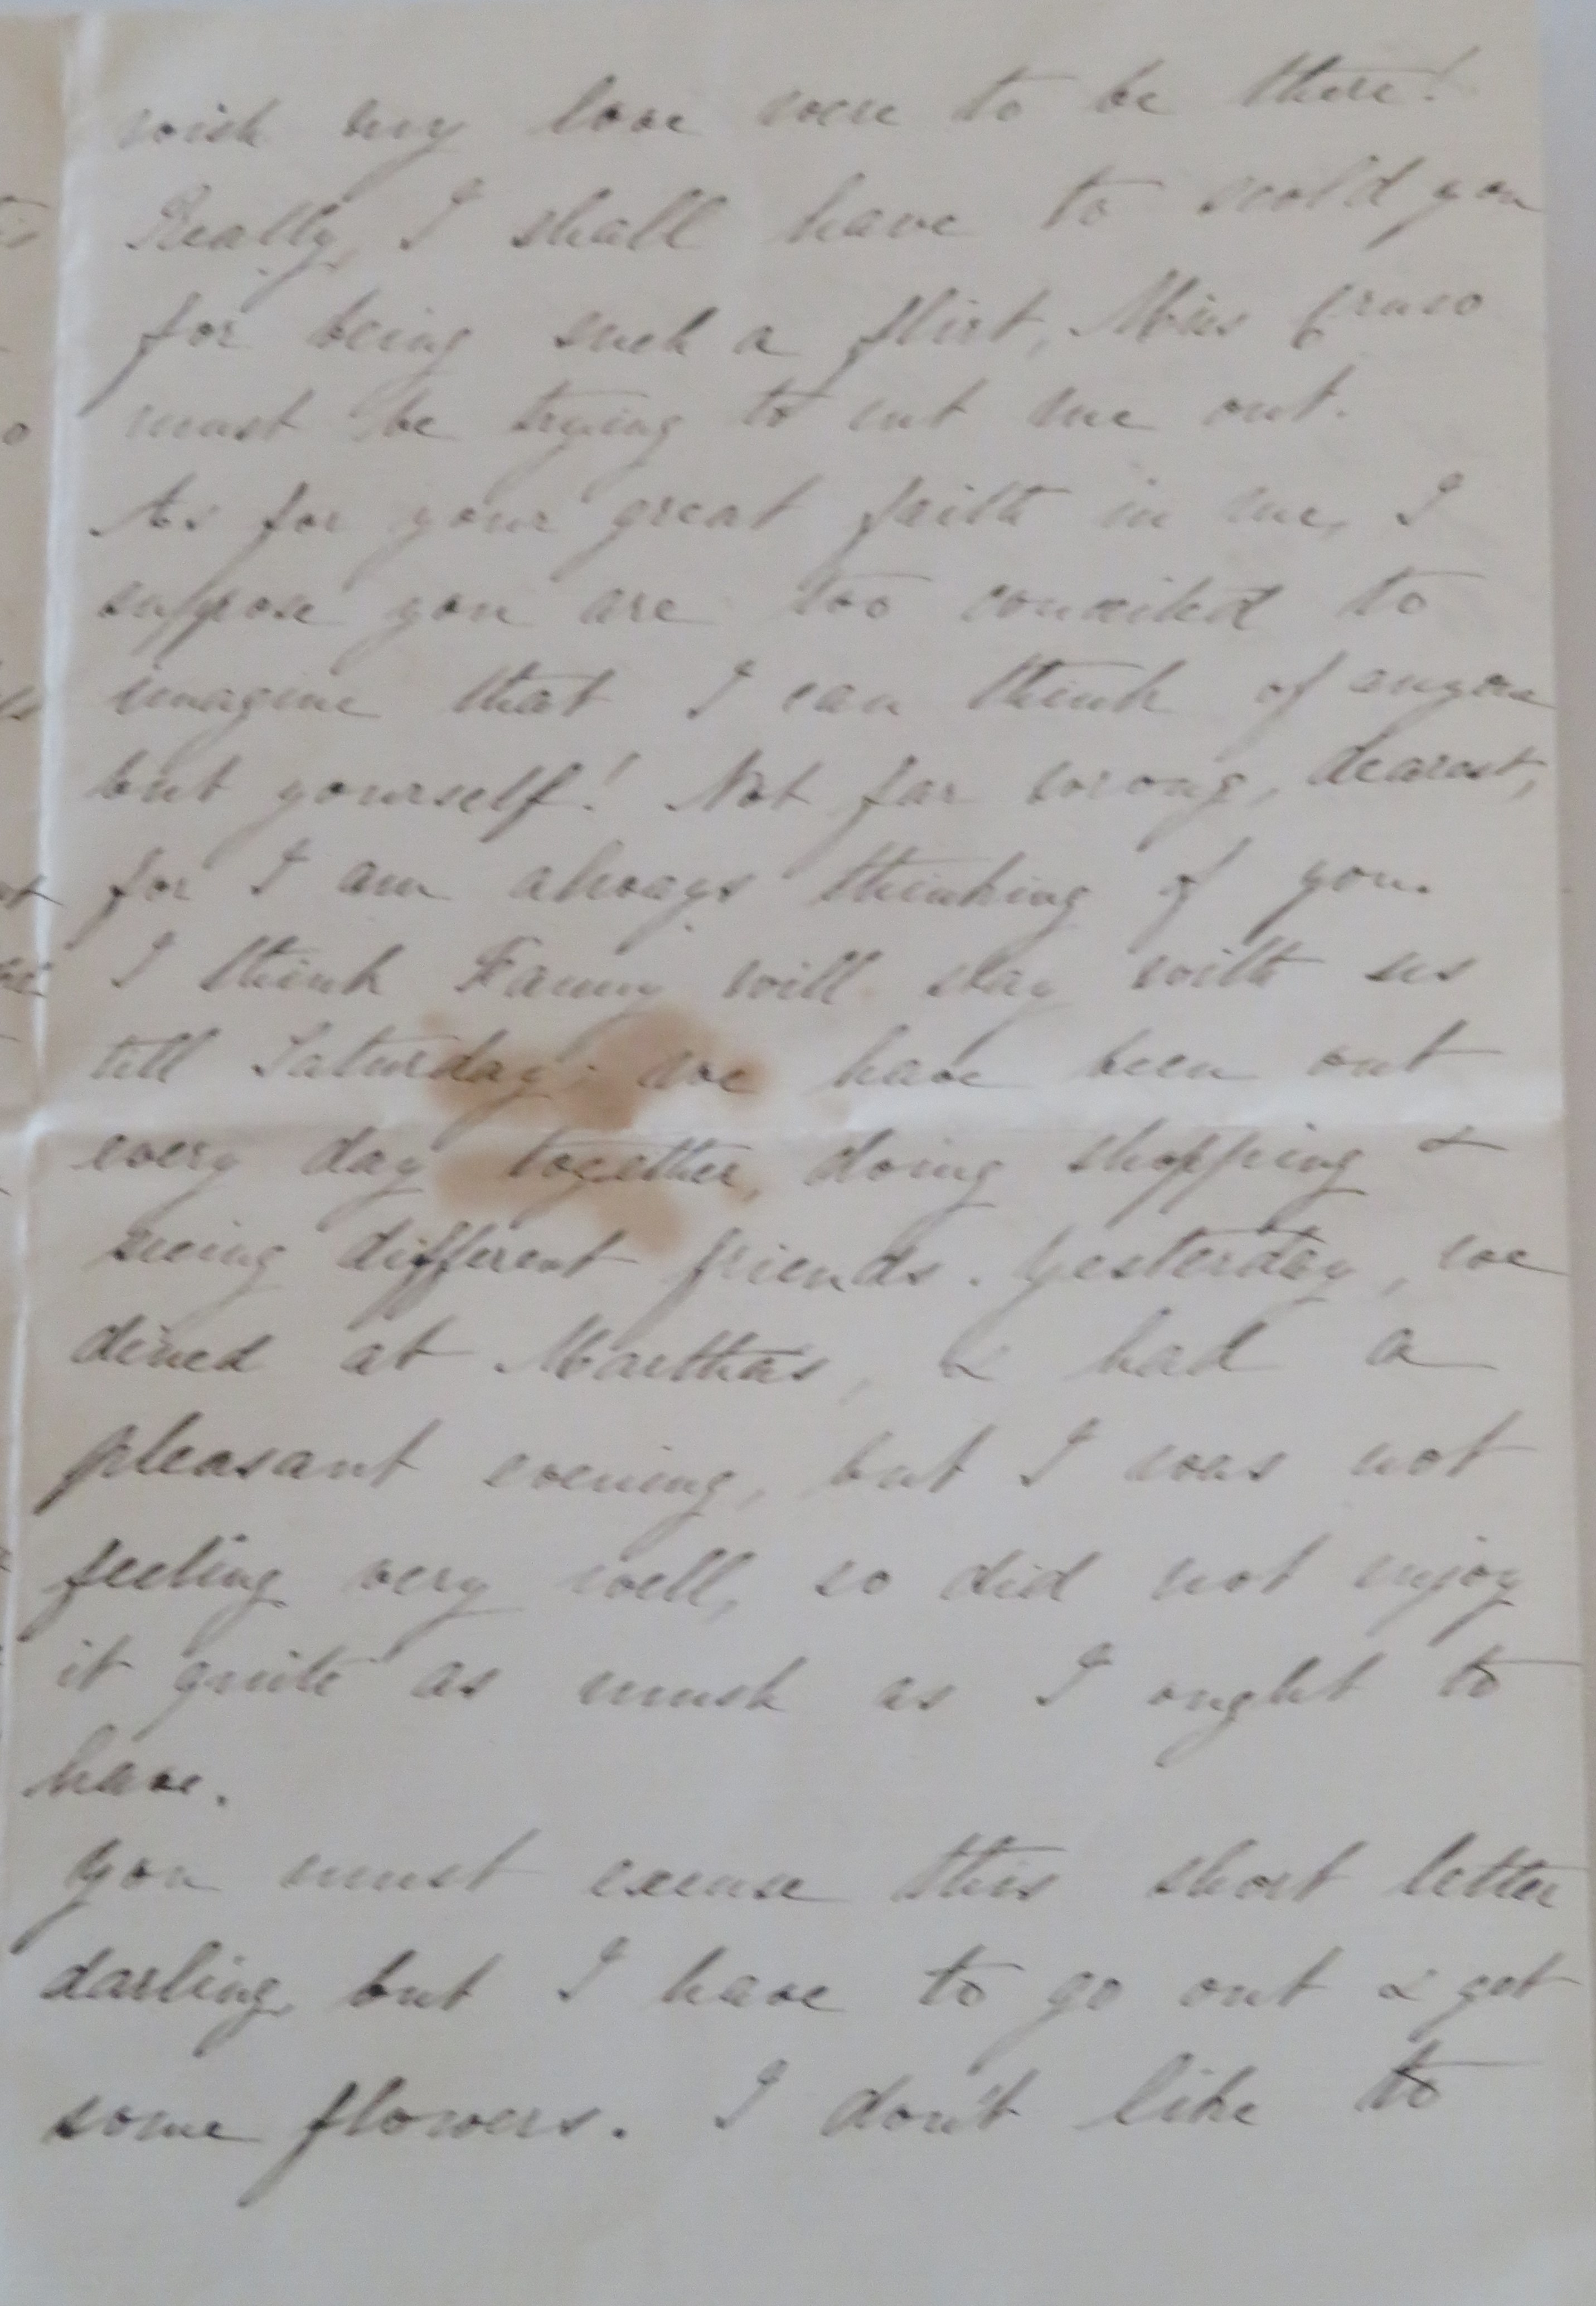 wish my love were to be there!
Really, I shall have to scold you
for being such a flirt, Miss
must be trying to cut me out.
As for your great faith in me, I
suppose you are too conceited to
imagine that I can think of anyone
but yourself! Not far wrong, dearest,
for I am always thinking of you.
I think Fanny will stay with us
till Saturday; we have been out
every day together, doing shopping &
seeing different friends. Yesterday, we
dined at Martha's, & had a
pleasant evening, but I was not
feeling very well, so did not enjoy
it quite as much as I ought to
have.
You must excuse this short letter
darling, but I have to go out & get
some flowers. I don't like to